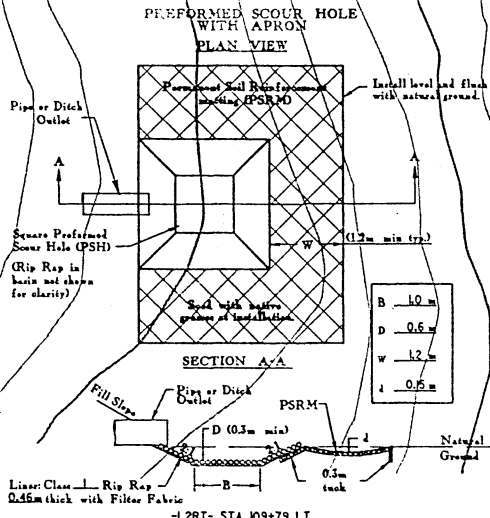 PREFORMED SCOUR HOLE
WITH APRON
PLAN VIEW
Permanent Soil Reinforcement
matting (PSRM)
Install level and flush
with natural ground.
Pipe or Ditch
Outlet
A
A
Square Preformed
Scour Hole (PSH)
(Rip Rap in
basin not shown
for clarity)
W
(1.2m min typ.)
Seed with native
grasses at installation.
B 1.0 m
D 0.6 m
W 1.2 m
d 0.15 m
SECTION A-A
Pipe or Ditch
Outlet
Fill Slope
D (0.3m min)
PSRM
d
Natural
Ground
B
0.3m
tuck
Liner: Class I Rip Rap
0.46m thick with Filter Fabric
-L2RT- STA 109+79 LT